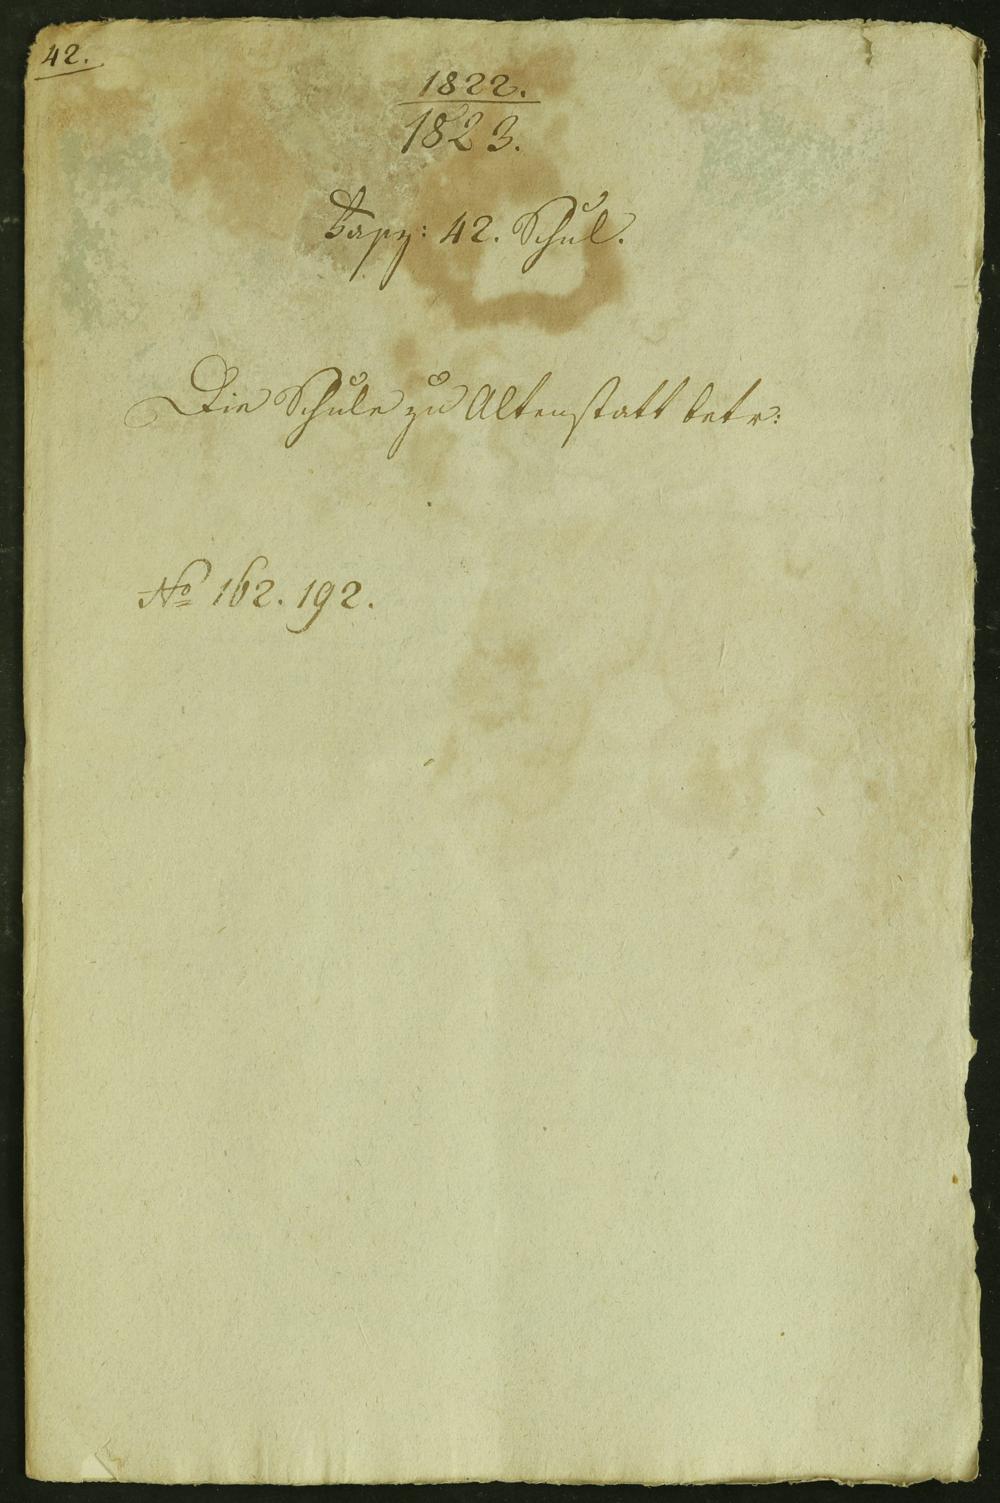 42.
1822.
1823.
42. Schul.
Die Schule zu Altenstatt betr:
No 162. 192.